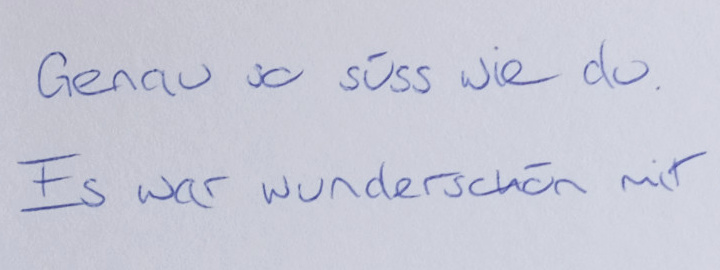 Genau so süss wie du.
Es war wunderschön mit